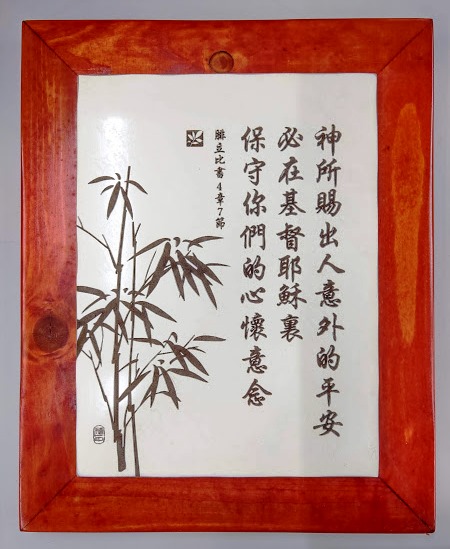 神所賜出人意外的平安
必在基督耶穌裏
保守你們的心懷意念
腓立比書4章7節